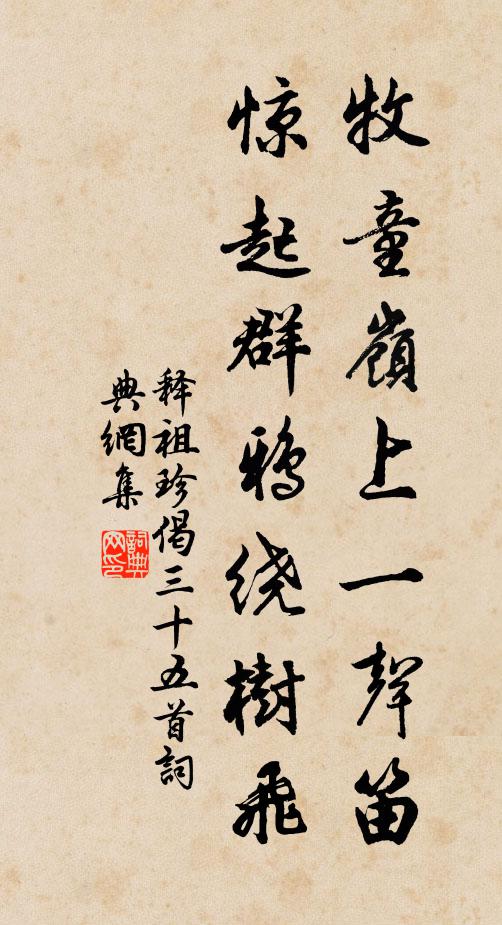 牧童嶺上一聲笛
惊起群鴉绕樹飛
释祖珍偈三十五首詞
典網集
詞典网印